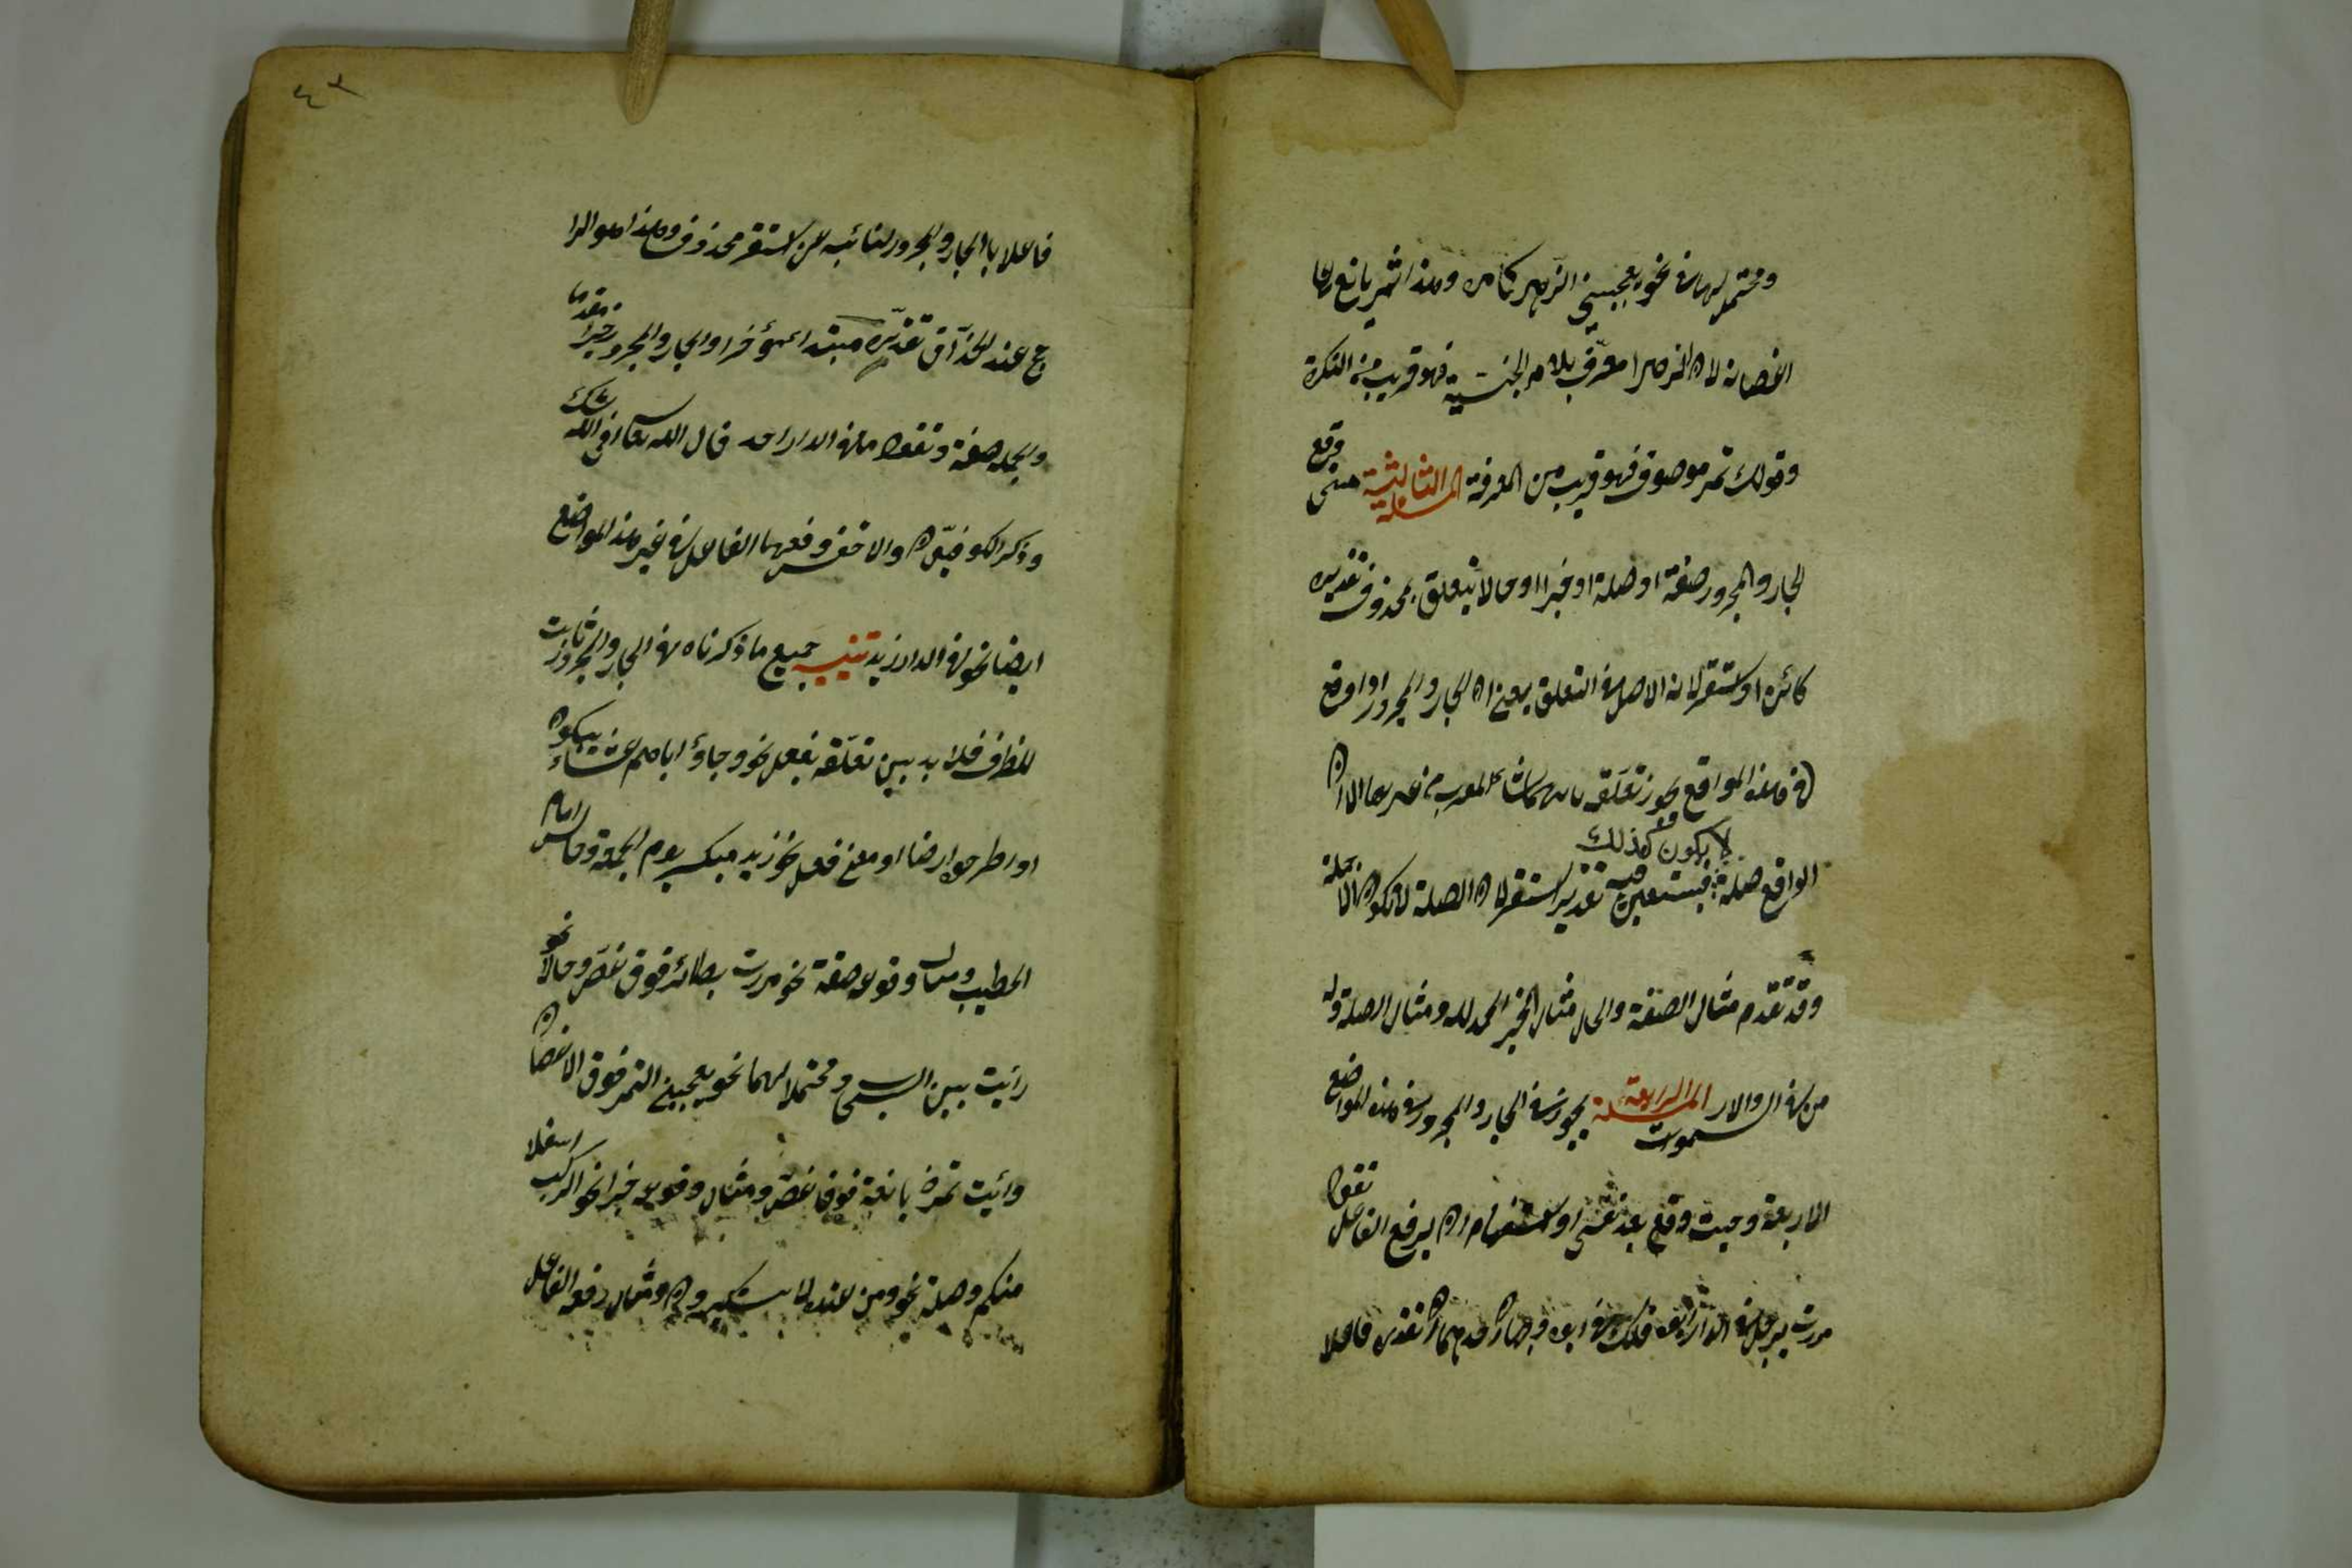 ومحتمل لهما في نحو يعجبني الزهر في اكمامه وهذا ثمر يانع على
اغصانه لان الزهر معرّف بلام الجنسية فهو قريب من النكرة
وقولك ثمر موصوف فهو قريب من المعرفة المسئلة الثالثة متى وقع
الجار والمجرور صفة او صلة او خبرا او حالا يتعلق بمحذوف تقديره
كائن او استقر لانه الاصل في التعلق يعني ان الجار والمجرور اذا وقع
في هذه المواقع يجوز تعلّقه الا ان
الواقع صلة فيتعين فيه تقدير استقر لان الصلة لا تكون الا جملة
لا يكون كذلك
وقد تقدم مثال الصفة والحال ومثال الخبر الحمد لله ومثال الصلة وله
من في السموات والارض المسئلة الرابعة يجوز في الجار والمجرور في هذه المواضع
الاربعة وحيث وقع بعد نفي او استفهام ان يرفع الفاعل تقول
مررت برجل في الدار ابوه فلك في ابوه وجهان احدهما ان تقدره فاعلا
٤٣
فاعلا بالجار والمجرور لنائبه عن استقر محذوف وهذا هو الرا
جح عند الحذّاق تقدّره مبتدا مؤخرا والجار والمجرور خبرا مقدما
والجملة صفة وتقول ما في الدار احد قال الله تعا افي الله شك
وذكر الكوفيّون والاخفش رفعهما الفاعل في غير هذه المواضع
ايضا نحو في الدار زيد تنبيه جميع ما ذكرناه في الجار والمجرور ثابت
للظرف فلا بد بين تعلّقه بفعل نحو وجاؤ اباهم عشاء يبكون
او اطرحوه ارضا او معنى فعل نحو زيد مبكر يوم الجمعة وجالس امام
الخطيب ومثال وقوعه صفة نحو مررت بطائر فوق غصن وحالا نحو
رايت بين السحب ومحتملا لهما نحو يعجبني الثمر فوق الاغصان
ورائيت ثمرة يانعة فوق غصن ومثال وقوعه خبرا نحو الركب اسفل
منكم وصلة نحو ومن عنده لا يستكبرون ومثال رفعه الفاعل